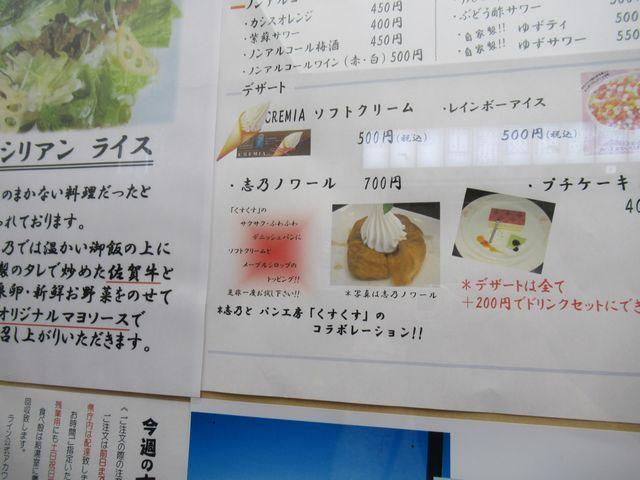 シリアン ライス
のまかない料理だったと
られております。
乃では温かい御飯の上に
製のタレで炒めた佐賀牛と
卵・新鮮お野菜をのせて
オリジナルマヨソースで
召し上がりいただきます。
450円
・カシスオレンジ 400円
・紫蘇サワー 400円
・ノンアルコール梅酒 450円
・ノンアルコールワイン(赤・白) 500円
・ぶどう酢サワー 500
・自家製!! ゆずティ 500
・自家製!! ゆずサワー 550
デザート
CREMIA ソフトクリーム
500円(税込)
CREMIA
・レインボーアイス
500円(税込)
・志乃ノワール 700円
「くすくす」の
サクサク・ふわふわ
デニッシュパンに
ソフトクリームと
メープルシロップの
トッピング!!
是非一度お試し下さい!!
*写真は志乃ノワール
*志乃と パン工房「くすくす」の
コラボレーション!!
・プチケーキ
40
*デザートは全て
+200円でドリンクセットにでき
今週の
《ご注文の際の注
ご注文は前日ま
県庁内は配達致しま
お時間ご指定いた
残業用にも土日祝日
食べ殻は給湯室に
回収致します。
ライン公式アカウ